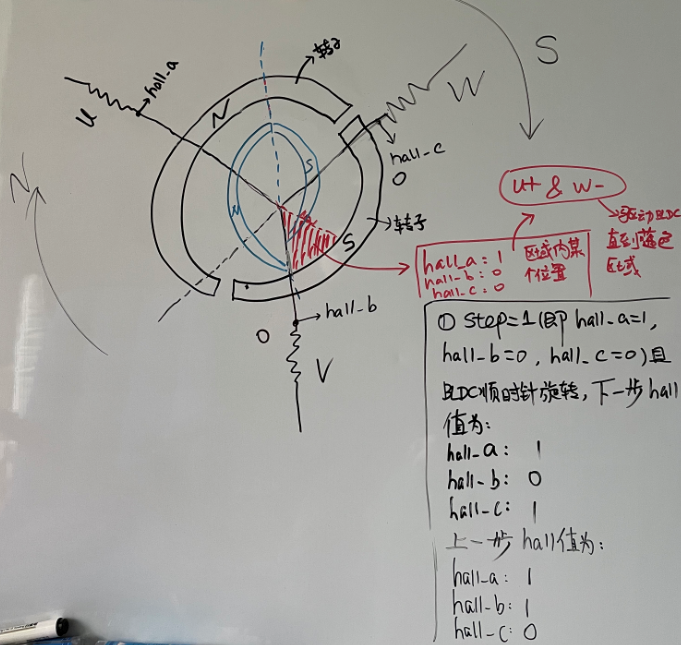 转子
S
hall_a
U
N
W
hall_c
0
S
N
转子
N
S
hall_b
0
V
U+ & W-
驱动BLDC
直到蓝色
区域
hall_a: 1
hall_b: 0
hall_c: 0
区域内某
个位置
① Step=1(即 hall_a=1,
hall_b=0, hall_c=0)且
BLDC顺时针旋转,下一步hall
值为:
hall_a: 1
hall_b: 0
hall_c: 1
上一步 hall值为:
hall_a: 1
hall_b: 1
hall_c: 0